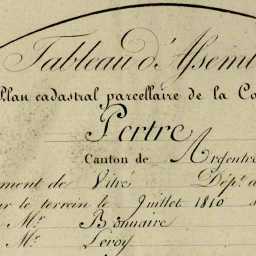 Tableau d'Assemb
Plan cadastral parcellaire de la Co
Pertre
Canton de Argentré
ment de Vitré Dép.t d
ur le terrain le Juillet 1810 s
Mr. Bonnaire
Mr. Leroy